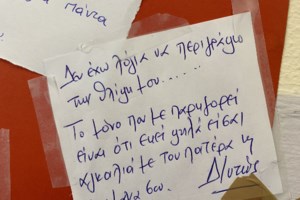 πάντα
Δεν έχω λόγια να περιγράψω
την θλίψη μου......
Το μόνο που με παρηγορεί
είναι ότι εκεί ψηλά είσαι
αγκαλιά με τον πατέρα
σου.